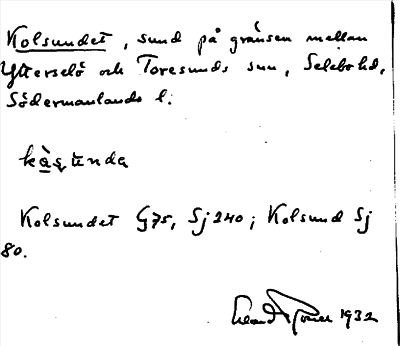 Kolsundet, sund på gränsen mellan
Ytterselö och Toresunds snn, Selebo hd,
Södermanlands l.
Kolsundet G75, Sj 240; Kolsund Sj
80.
1932